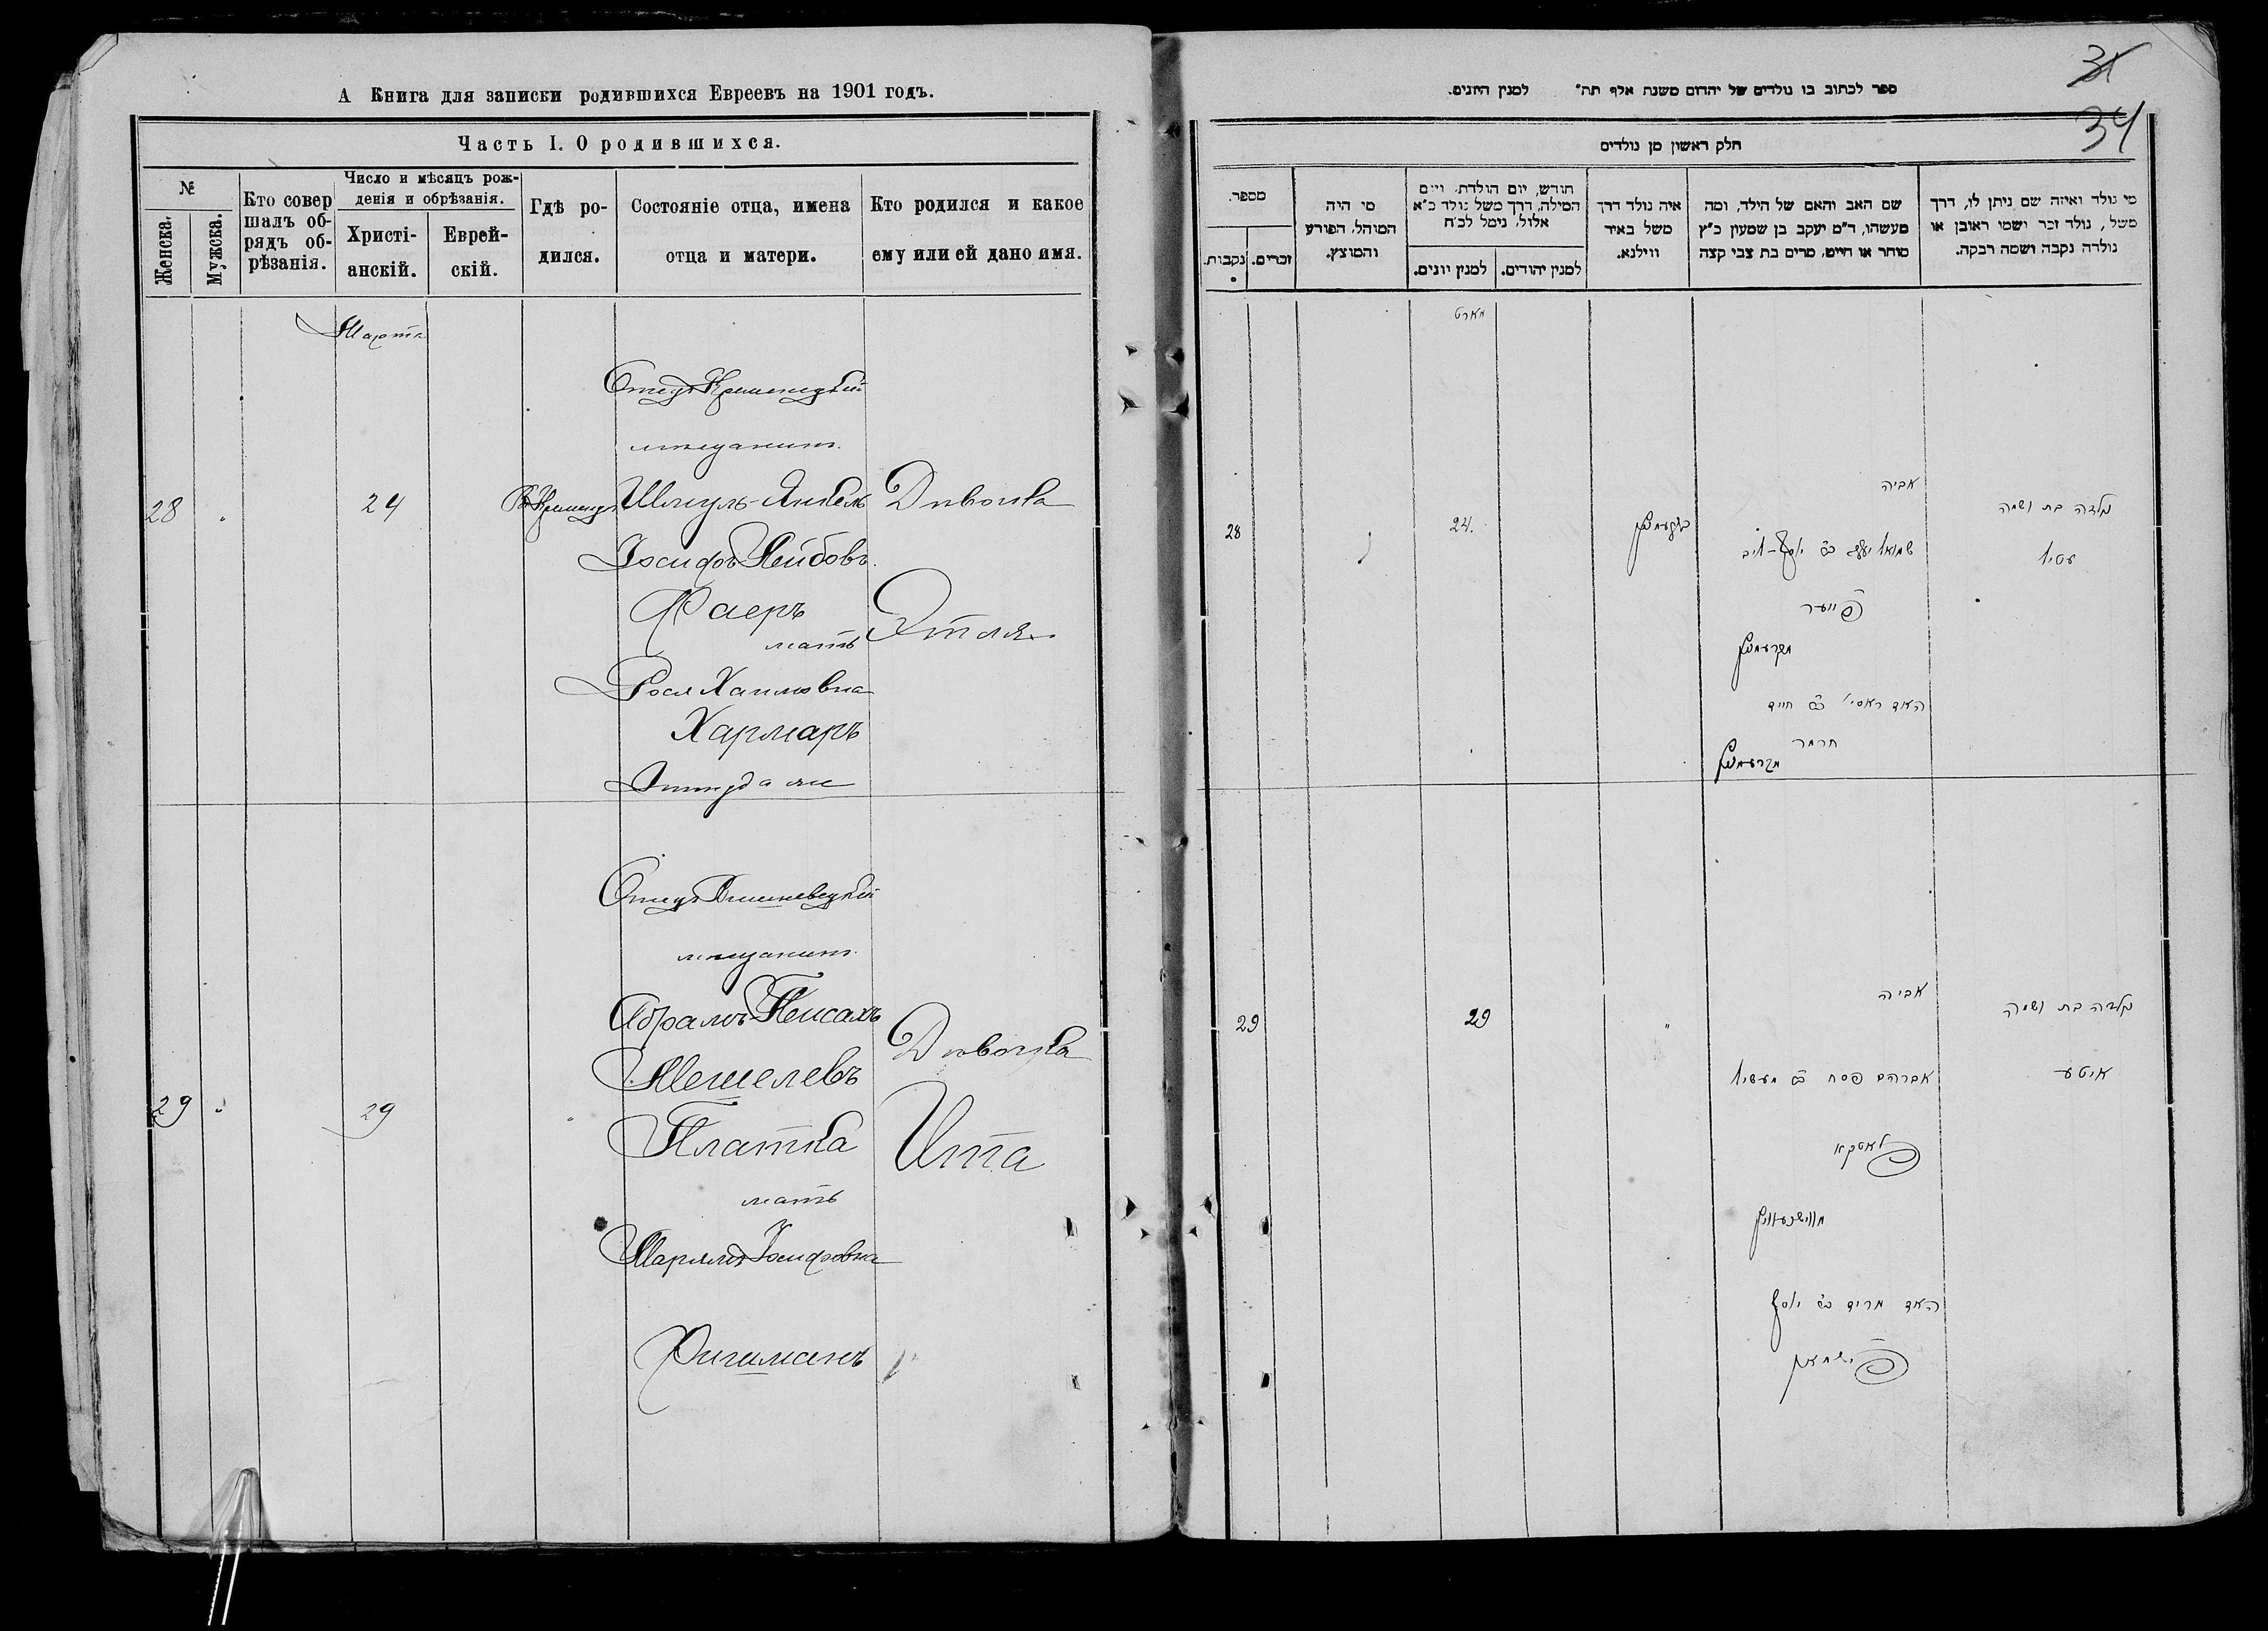 А Книга для записки родившихся Евреевъ на 1901 годъ.
Часть I. О родившихся.
№
Женска.
Мужска.
Кто совершалъ обрядъ обрѣзанія.
Число и мѣсяцъ рожденія и обрѣзанія.
Христіанскій.
Еврейскій.
Гдѣ родился.
Состояніе отца, имена отца и матери.
Кто родился и какое ему или ей дано имя.
Марта
28
24
Отецъ Кременецкій
мѣщанинъ
Шмуль-Янкель
Іосифъ Лейбовъ
Фаеръ
мать
Рося Хаимовна
Хармаръ
Девочка
Этля
Отецъ Вишневецкій
мѣщанинъ
29
29
Абрамъ-Пейсахъ
Мешелевъ
Платка
мать
Марямъ Іосифовна
Фишманъ
Девочка
Ита
34
ספר לכתוב בו נולדים של יהדום משנת אלף תת" למנין היונים.
חלק ראשון מן נולדים
מספר.
נקבות.
זכרים.
מי היה
המוהל, הפורע
והמוצץ.
חודש, יום הולדת, ויום
המילה, דרך משל נולד כ"א
אלול, נימל לכ"ח
למנין יונים.
למנין יהודים.
איה נולד דרך
משל באיר
ווילנא.
שם האב והאם של הילד, ומה
מעשהו, ד"מ יעקב בן שמעון כ"ץ
סוחר או חייט, מרים בת צבי קצה
מי נולד ואיזה שם ניתן לו, דרך
משל, נולד זכר ושמו ראובן או
נולדה נקבה ושמה רבקה.
מארט
28
24.
אביה
שמואל יעקב ב"ר יוסף-ליב
פייער
מקרעמניץ
האם ראסי' ב"ר חיים
חרמר
מקרעמניץ
נולדה בת ושמה
עטיל
29
29
אביה
אברהם פסח ב"ר מעשיל
פלאטקא
מווישנעוויץ
האם מרים ב"ר יוסף
פישמאן
נולדה בת ושמה
איטע